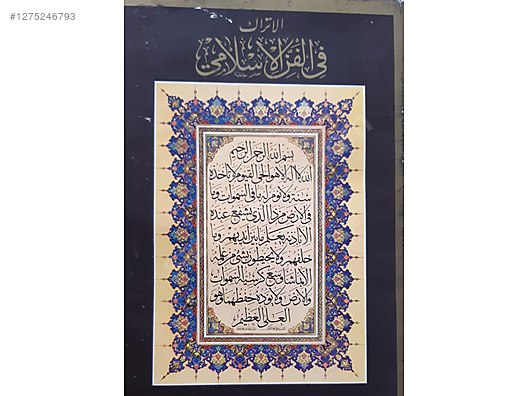 #1275246793
الاتراك
في الفن الاسلامي
بسم الله الرحمن الرحيم
الله لا اله الا هو الحي القيوم لا تأخذه
سنة ولا نوم له ما في السموات وما
في الارض من ذا الذي يشفع عنده
الا باذنه يعلم ما بين ايديهم وما
خلفهم ولا يحيطون بشئ من علمه
الا بما شاء وسع كرسيه السموات
والارض ولا يؤده حفظهما وهو
العلي العظيم